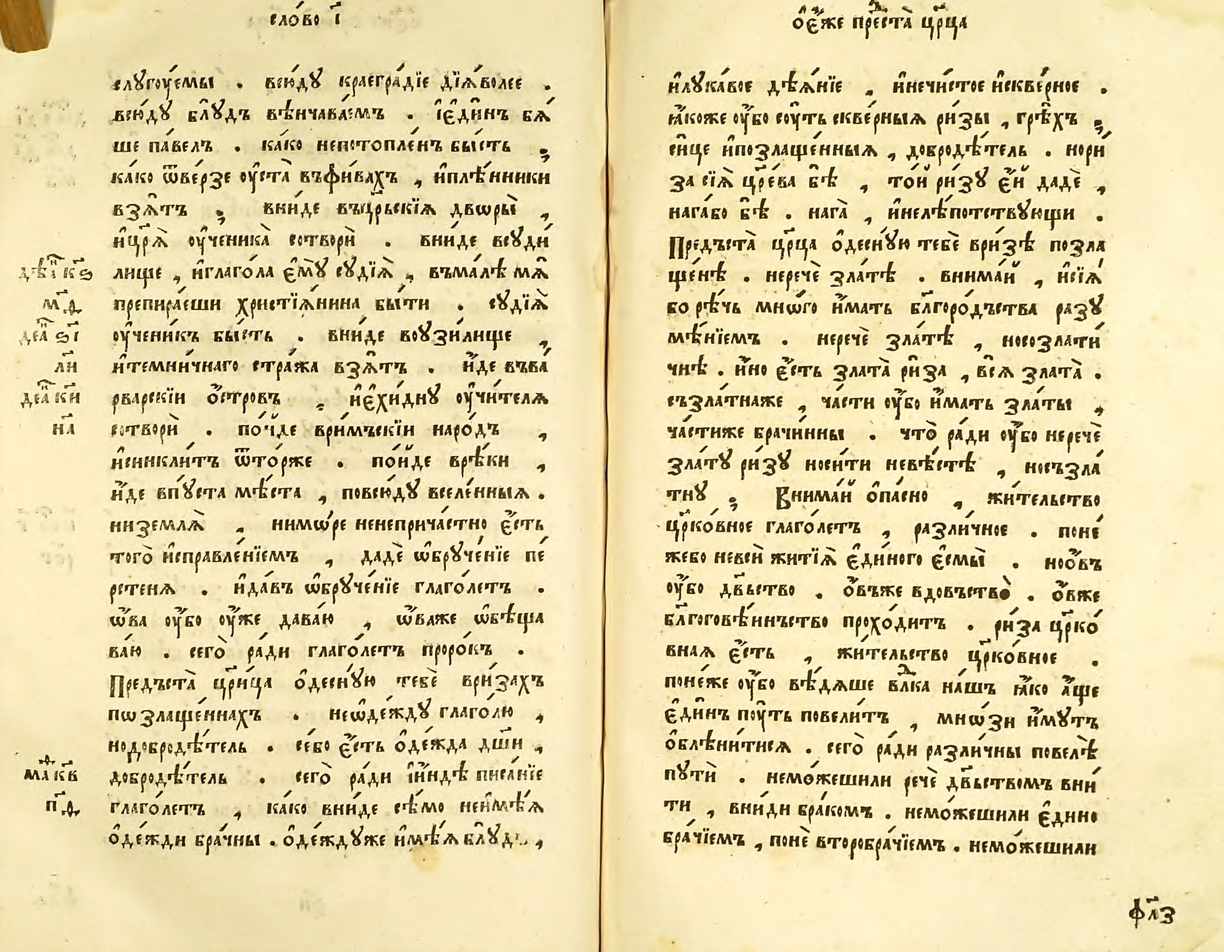 сло́во і҃
слꙋгоу́емы . всю́дꙋ краегра́дїе дїѧ́волее .
всю́дꙋ блꙋ́дъ вѣнчава́емъ . і҆еди́нъ бѧ́
ше па́велъ . ка́ко непотопле́нъ бы́сть ;
ка́ко ѿве́рзе оу҆ста̀ въѳива́хъ , и҆плѣ́нники
взѧ́тъ ; вни́де въцр҃ьскїѧ двѡры̀ ,
и҆цр҃ѧ̀ оу҆ченика̀ сотворѝ . вни́де всꙋди́
лище , и҆глаго́ла є҆мꙋ̀ сꙋдїѧ̀ , въма́лѣ мѧ̀
препира́еши христїѧ́нина бы́ти . сꙋдїѧ̀
оу҆ченикъ бы́сть . вни́де воꙋзи́лище ,
и҆темни́чнаго стра́жа взѧ́тъ . и҆́де въва́
рварскїи о҆́стровъ , и҆є҆хи́днꙋ оу҆чи́телѧ
сотворѝ . пои́де ври́мъскїи наро́дъ ,
и҆синкли́тъ ѿто́рже . пои́де врѣ́ки ,
и҆́де впꙋ́ста мѣ́ста , повсю́дꙋ вселе́нныѧ .
низемлѧ̀ , нимо́ре ненеприча́стно є҆́сть
того̀ и҆справле́нїемъ , дадѐ ѡ҆брꙋче́нїе пе́
рстенѧ . и҆да́въ ѡ҆брꙋче́нїе глаго́летъ .
ѡ҆́ва оу҆́бо оу҆́же даваю̀ , ѡ҆́важе ѡ҆бѣща
ваю̀ . сего̀ ра́ди глаго́летъ проро́къ .
Предъста̀ цр҃и́ца ѡ҆деснꙋ́ю тебѐ ври́захъ
пѡзлаще́ннахъ . неѡ҆де́ждꙋ глаго́лю ,
нодоброде́тель . се́бо є҆́сть ѻ҆де́жда дш҃и ,
доброде́тель . сего̀ ра́ди и҆и҆ндѣ̀ писа́нїе
глаго́летъ , ка́ко вни́де сѣ́мо неимѣ́ѧ
ѻ҆де́жди бра́чны . ѻ҆де́ждꙋже и҆мѣ́ѧ
дѣѧ҃ кѕ
м҃д
деѧ҃ ѕі
л҃и
деѧ҃ ки
н҃а
ма кв
п҃д
ѻ҆е́же пре́ста̀ цр҃ца
и҆лꙋка́вое дѣѧ́нїе , и҆нечи́стое и҆скве́рное .
ꙗ҆́коже оу҆́бо сꙋ́ть скве́рныѧ ри́зы , грѣ́хъ ;
си́це и҆позлаще́нныѧ , доброде́тель . нори́
за сїѧ̀ цр҃ева бѣ̀ , то́и ри́зꙋ є҆́и дадѐ ,
нага́бо бѣ̀ . нага̀ , и҆нелѣ́потствꙋющи .
Предъста̀ цр҃ца ѡ҆деснꙋ́ю тебѐ ври́зѣ позла
ще́нѣ . неречѐ зла́тѣ . внима́и , и҆сїѧ̀
бо рѣ́чь мно́го и҆́мать бл҃горо́дъства разꙋ
мѣ́нїемъ . неречѐ зла́тѣ , носозлати́
чнѣ . и҆́но є҆́сть злата̀ ри́за , всѧ̀ злата̀ .
съзла́тнаже , ча́сти оу҆́бо и҆́мать зла́ты ,
ча́стиже брачи́нны . что̀ ра́ди оу҆́бо неречѐ
зла́тꙋ ри́зꙋ носи́ти невѣ́стѣ , носъзла́
тнꙋ ; Внима́и ѻ҆па́сно , жи́тельство
цр҃ко́вное глаго́летъ , разли́чное . поне́
жебо невсѝ житїѧ̀ є҆ди́ного є҆смы̀ . ноо҆́въ
оу҆́бо дв҃ьство , ѻ҆́въже вдовъство̀ . ѻ҆́вже
бл҃гоговѣ́инъство прохо́дитъ . ри́за цр҃ко́
внаѧ є҆́сть , жи́тельство цр҃ко́вное .
поне́же оу҆́бо вѣ́дѧше влⷣка на́шъ ꙗ҆́ко а҆́ще
є҆ди́нъ пꙋ́ть повели́тъ , мно́зи и҆́мꙋтъ
ѻ҆блѣни́тисѧ . сего̀ ра́ди разли́чны повелѣ̀
пꙋтѝ . немо́жешили речѐ дв҃ьствомъ вни́
ти , вни́ди бра́комъ . немо́жешили є҆дино
бра́чїемъ , понѐ второбра́чїемъ . немо́жешили
фл҃з